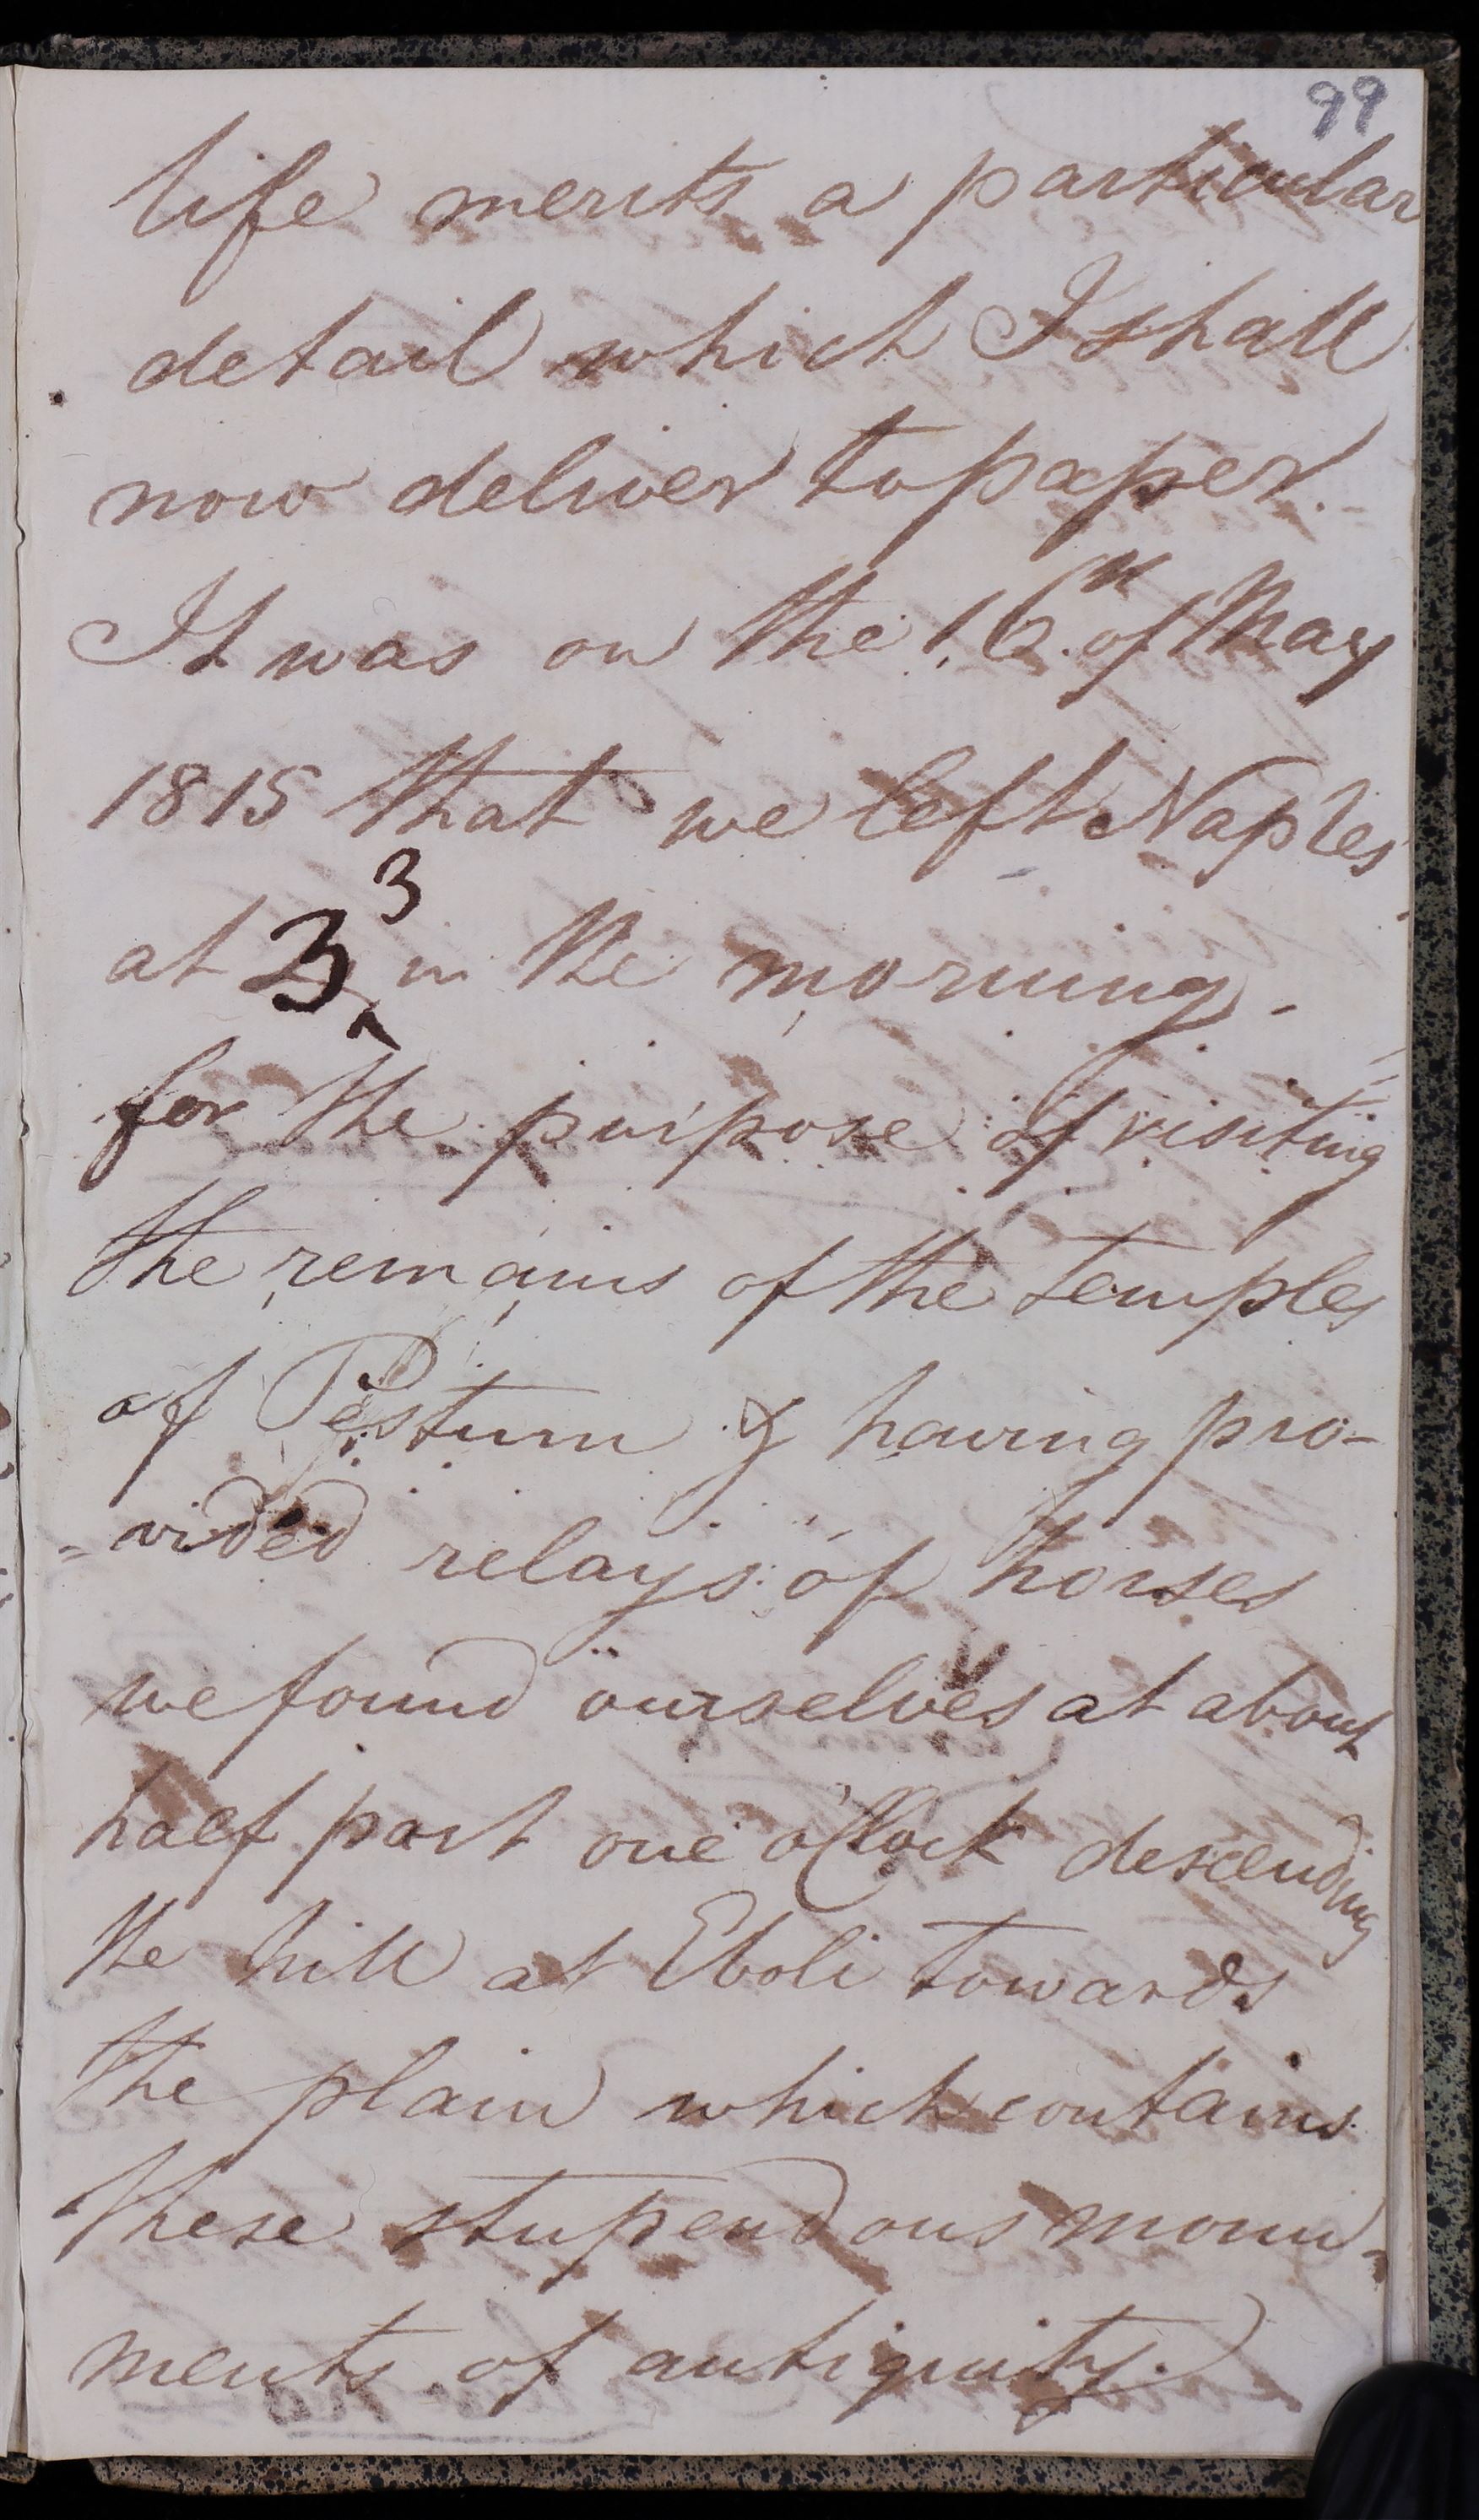 99
life merits a particular
detail which I shall
now deliver to paper.
It was on the 16th of May
1815 that we left Naples
3
at 3 in the morning -
for the purpose of visiting
the remains of the temples
of Pestum & having pro-
=vided relays of horses
we found ourselves at about
half past one o'Clock descending
the hill at Eboli towards
the plain which contains
these stupendous monu-
ments of antiquity.